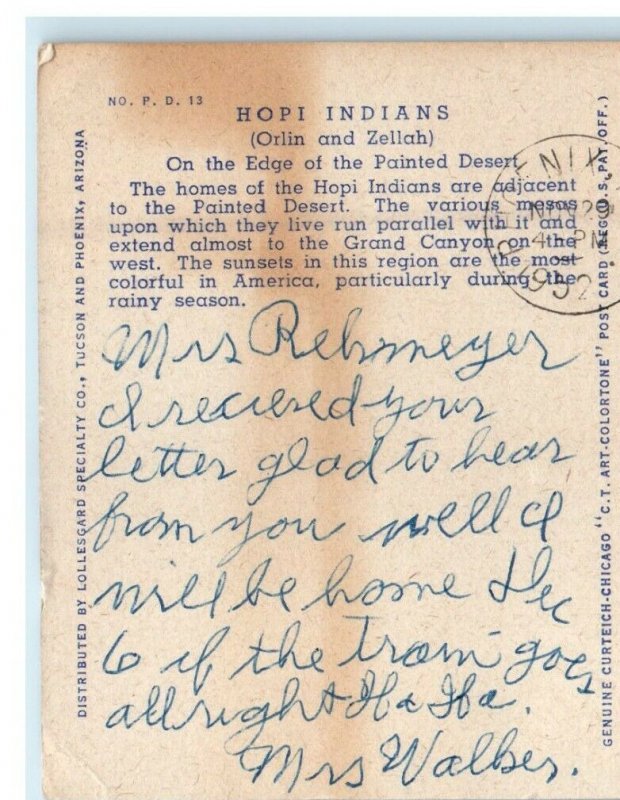 NO. P. D. 13
HOPI INDIANS
(Orlin and Zellah)
On the Edge of the Painted Desert
The homes of the Hopi Indians are adjacent
to the Painted Desert. The various mesas
upon which they live run parallel with it and
extend almost to the Grand Canyon on the
west. The sunsets in this region are the most
colorful in America, particularly during the
rainy season.
Mrs Rehmeyer
I recieved your
letter glad to hear
from you well I
will be home Dec
6 if the train goes
allright Ha Ha.
Mrs Walker.
DISTRIBUTED BY LOLLESGARD SPECIALTY CO., TUCSON AND PHOENIX, ARIZONA
GENUINE CURTEICH-CHICAGO "C.T. ART-COLORTONE" POST CARD (REG. U.S. PAT. OFF.)
NOV 29
PM
1952